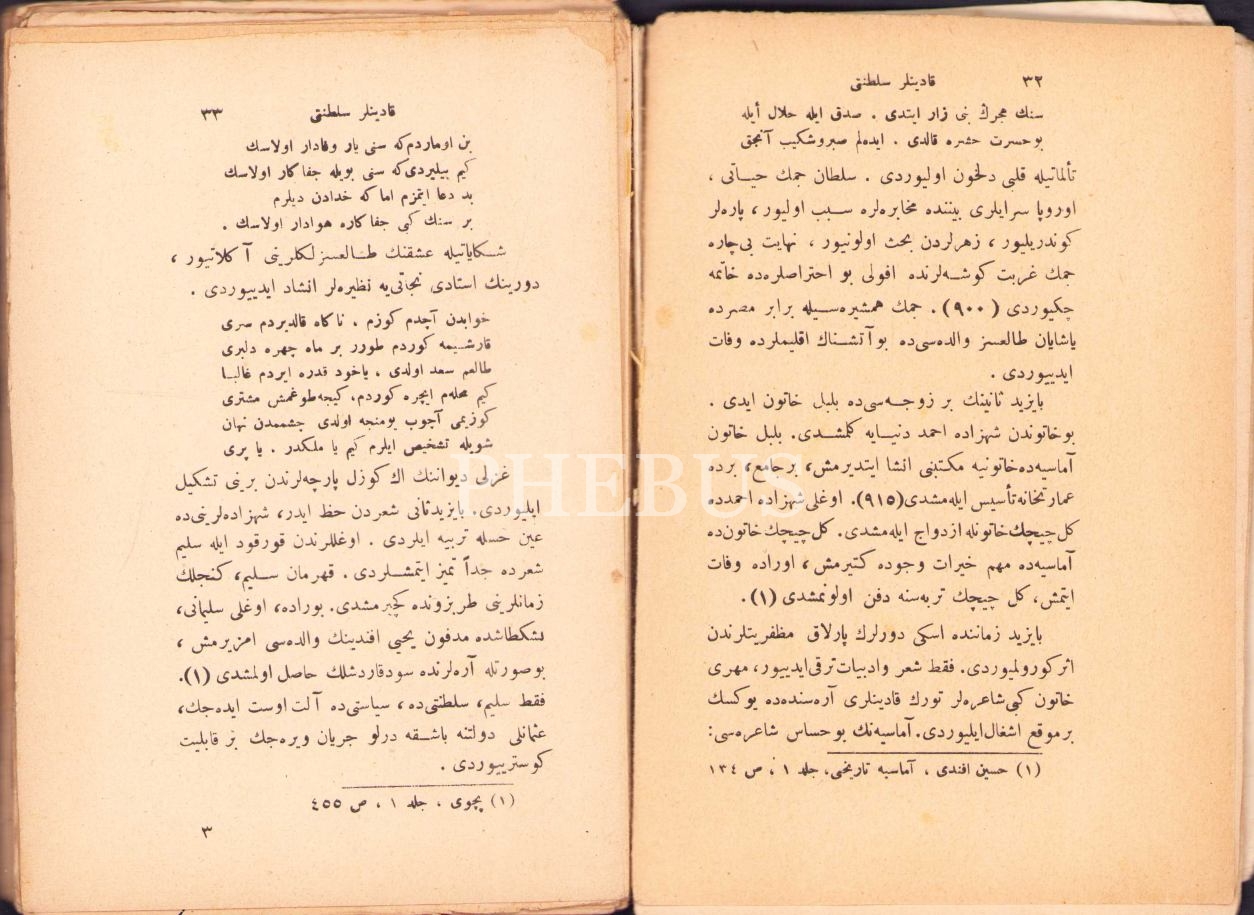 ٣٢ قادينلر سلطنتى
سنك هجرڭ بنى زار ايتدى . صدق ايله حلال أيله
بوحسرت حشره قالدى . ايده‌لم صبروشكيب آنجق
تألماتيله قلبى دلخون اوليوردى . سلطان جمك حياتى ،
اوروپا سرايلرى بيننده مخابره‌لره سبب اوليور ، پاره‌لر
كوندريليور ، زهرلردن بحث اولونيور ، نهايت بى‌چاره
جمك غربت كوشه‌لرنده افولى بو احتراصلره‌ده خاتمه
چكيوردى (٩٠٠) . جمك همشيره‌سيله برابر مصرده
ياشايان طالعسز والده‌سى‌ده بوآتشناك اقليملرده وفات
ايدييوردى .
بايزيد ثانينك بر زوجه‌سى‌ده بلبل خاتون ايدى .
بوخاتوندن شهزاده احمد دنيايه كلمشدى. بلبل خاتون
آماسيه‌ده‌خاتونيه مكتبنى انشا ايتديرمش، برجامع، برده
عمارتخانه‌تأسيس ايله‌مشدى(٩١٥). اوغلى شهزاده احمدده
كل‌چيچك‌خاتونله ازدواج ايله‌مشدى. كل‌چيچك خاتون‌ده
آماسيه‌ده مهم خيرات وجوده كتيرمش ، اوراده وفات
ايتمش، كل چيچك تربه‌سنه دفن اولونمشدى (١) .
بايزيد زماننده اسكى دورلرك پارلاق مظفريتلرندن
اثر كورولميوردى. فقط شعر وادبيات‌ترقى‌ايدييور، مهرى
خاتون كبى‌شاعره‌لر تورك قادينلرى آره‌سنده‌ده يوكسك
برموقع اشغال‌ايليوردى. آماسيه‌نك بوحساس شاعره‌سى:
(١) حسين افندى ، آماسيه تاريخى، جلد ١ ، ص ١٣٤
قادينلر سلطنتى ٣٣
بن اوماردم‌كه سنى يار وفادار اولاسك
كيم بيليردى‌كه سنى بويله جفا كار اولاسك
بد دعا ايتمزم اما كه خدادن ديلرم
بر سنك كبى جفا كاره هوادار اولاسك .
شكاياتيله عشقنك طالعسزلكلرينى آ كلاتيور ،
دورينك استادى نجاتى‌يه نظيره‌لر انشاد ايدييوردى .
خوابدن آچدم كوزم . ناكاه قالديردم سرى
قارشيمه كوردم طورر بر ماه چهره دلبرى
طالعم سعد اولدى ، ياخود قدره ايردم غالبا
كيم محله‌م ايچره كوردم، كيجه‌طوغمش مشترى
كوزيمى آجوب يومنجه اولدى چشممدن نهان
شويله تشخيص ايلرم كيم يا ملكدر . يا پرى
غزلى ديواننك اك كوزل پارچه‌لرندن برينى تشكيل
ايليوردى. بايزيدثانى شعردن حظ ايدر، شهزاده‌لرينى‌ده
عين حسله تربيه ايلردى . اوغللرندن قورقود ايله سليم
شعرده جداً تميز ايتمشلردى . قهرمان سليم، كنجلك
زمانلرينى طربزونده كچيرمشدى. بوراده، اوغلى سليمانى،
بشكطاشده مدفون يحيى افندينك والده‌سى امزيرمش ،
بوصورتله آره‌لرنده سودقاردشلك حاصل اولمشدى (١).
فقط سليم، سلطنتى‌ده، سياستى‌ده آلت اوست ايده‌جك،
عثمانلى دولتنه باشقه درلو جريان ويره‌جك بر قابليت
كوستريیوردى .
(١) پچوى ، جلد ١ ، ص ٤٥٥
٣
PHEBUS